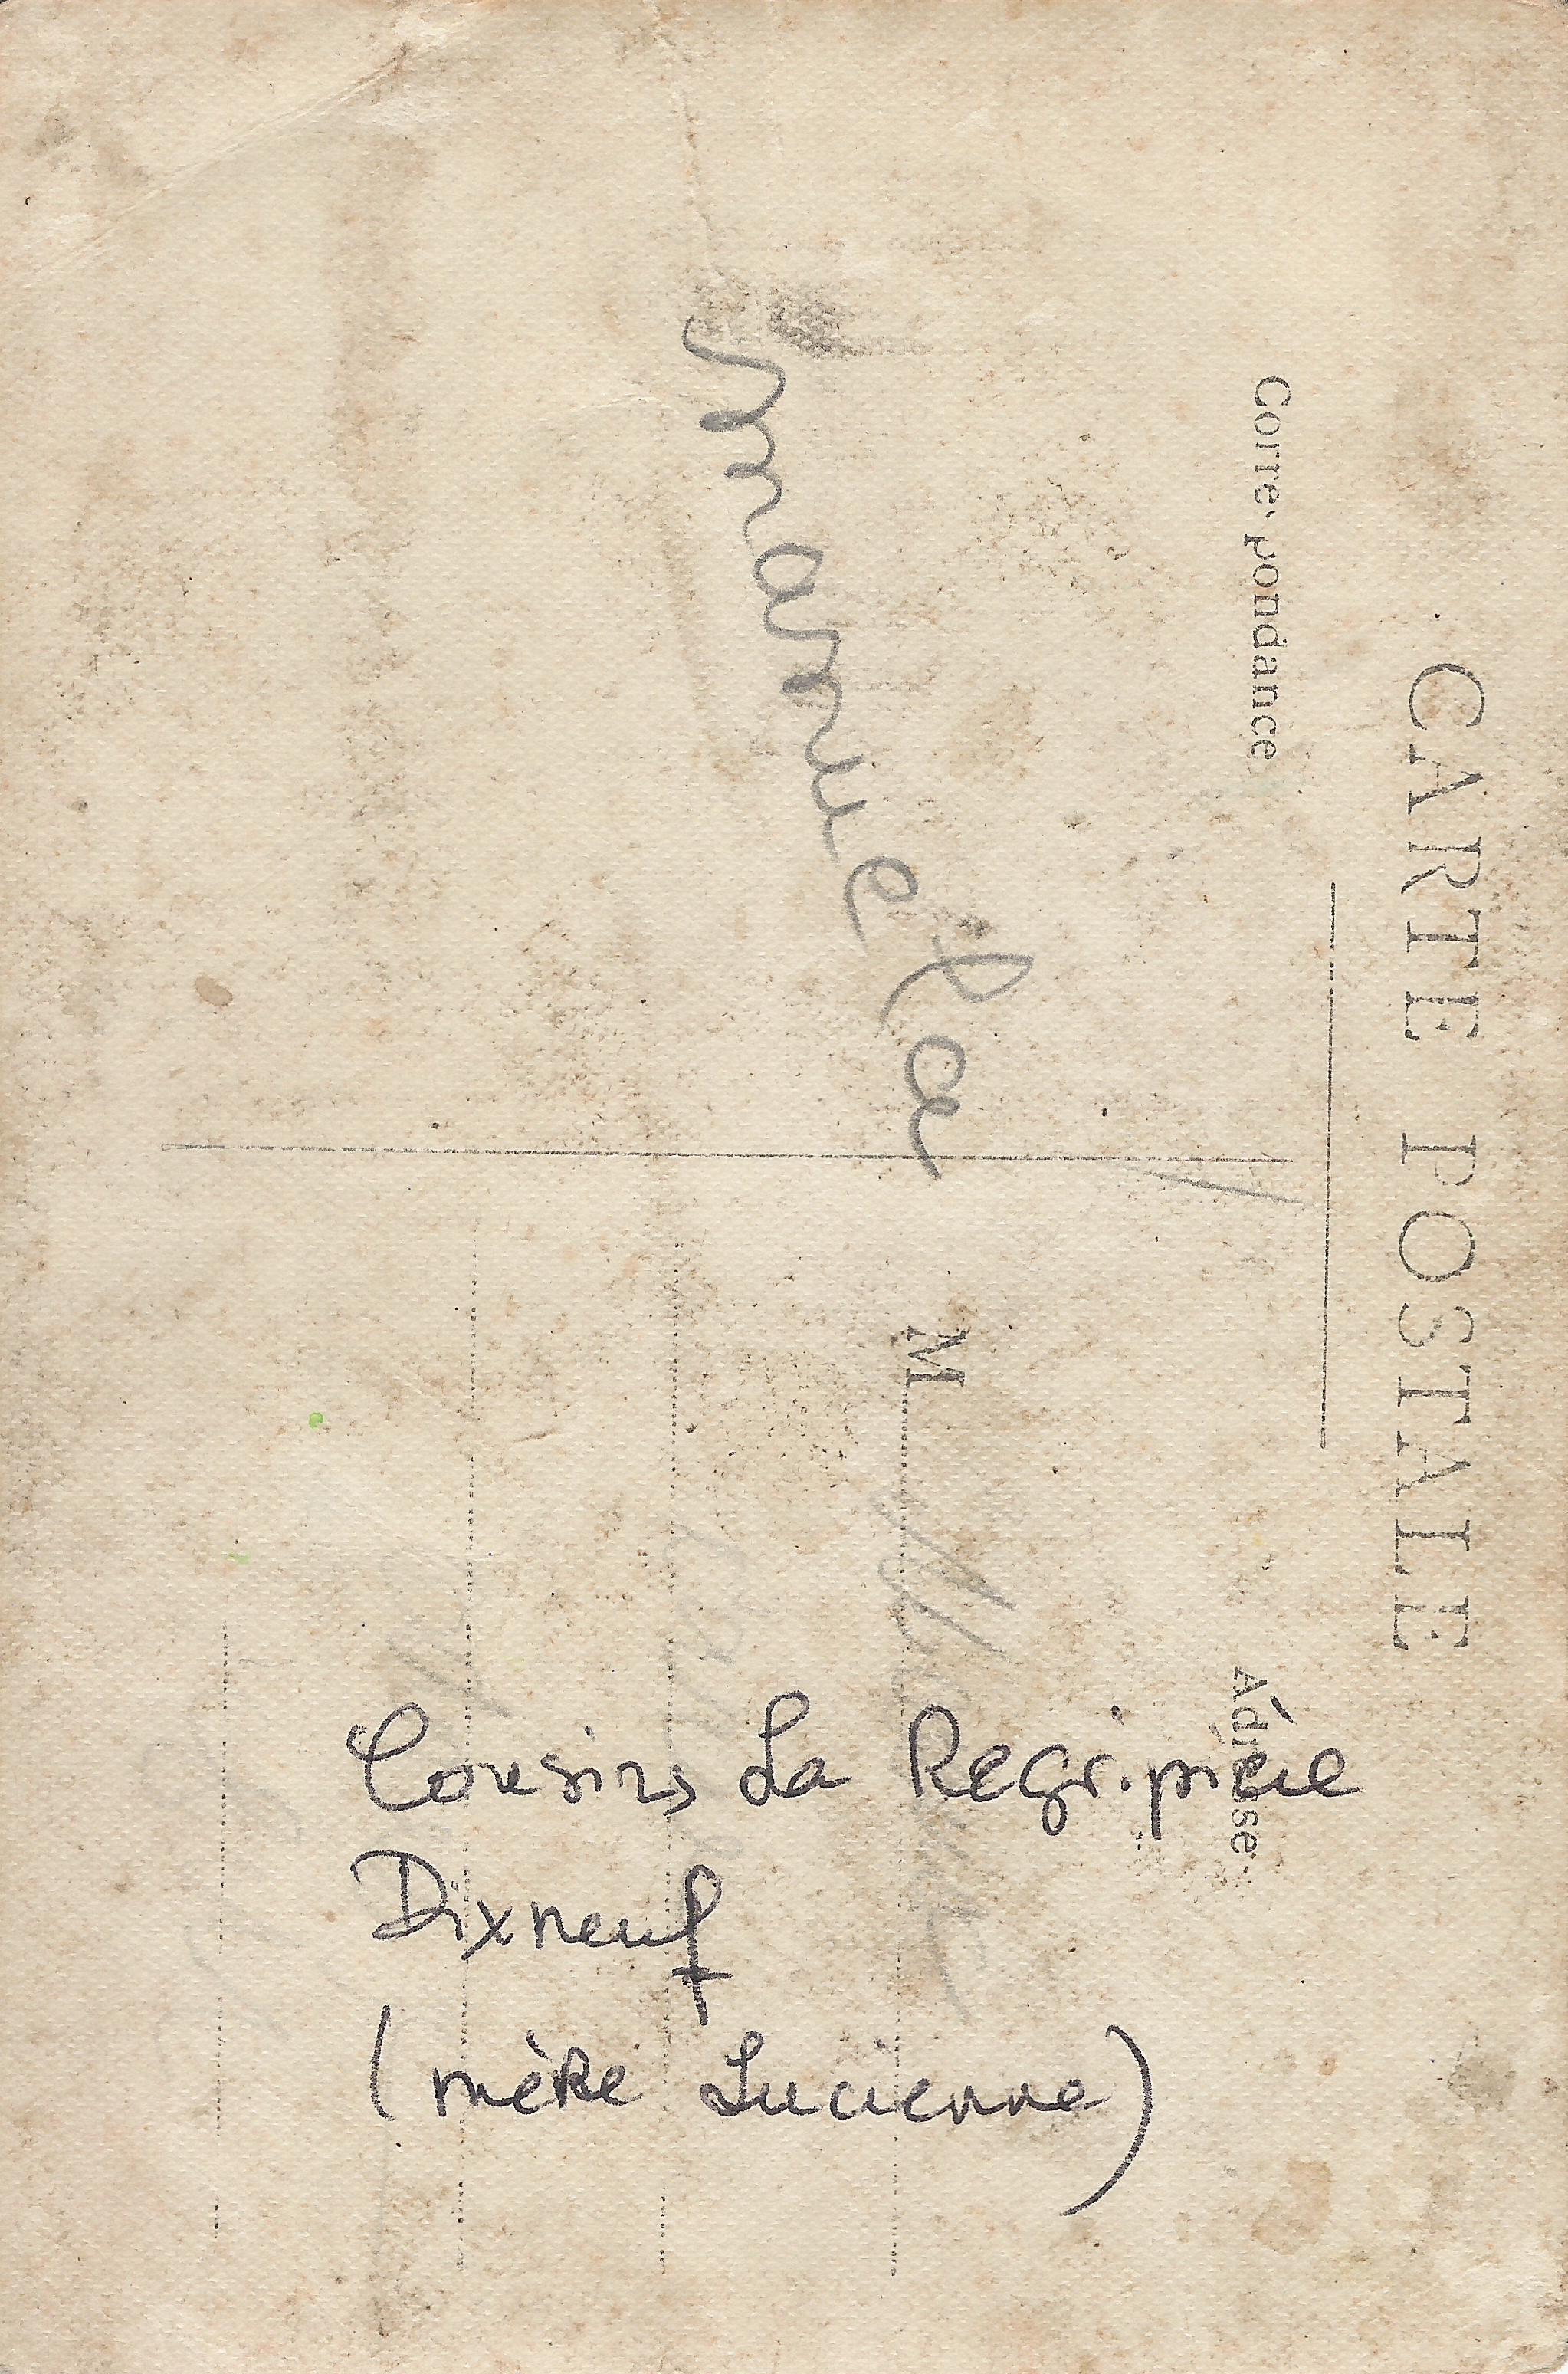 CARTE POSTALE
Correspondance
Adresse
M
manuela
Cousins La Regripière
Dixneuf
(mère Lucienne)